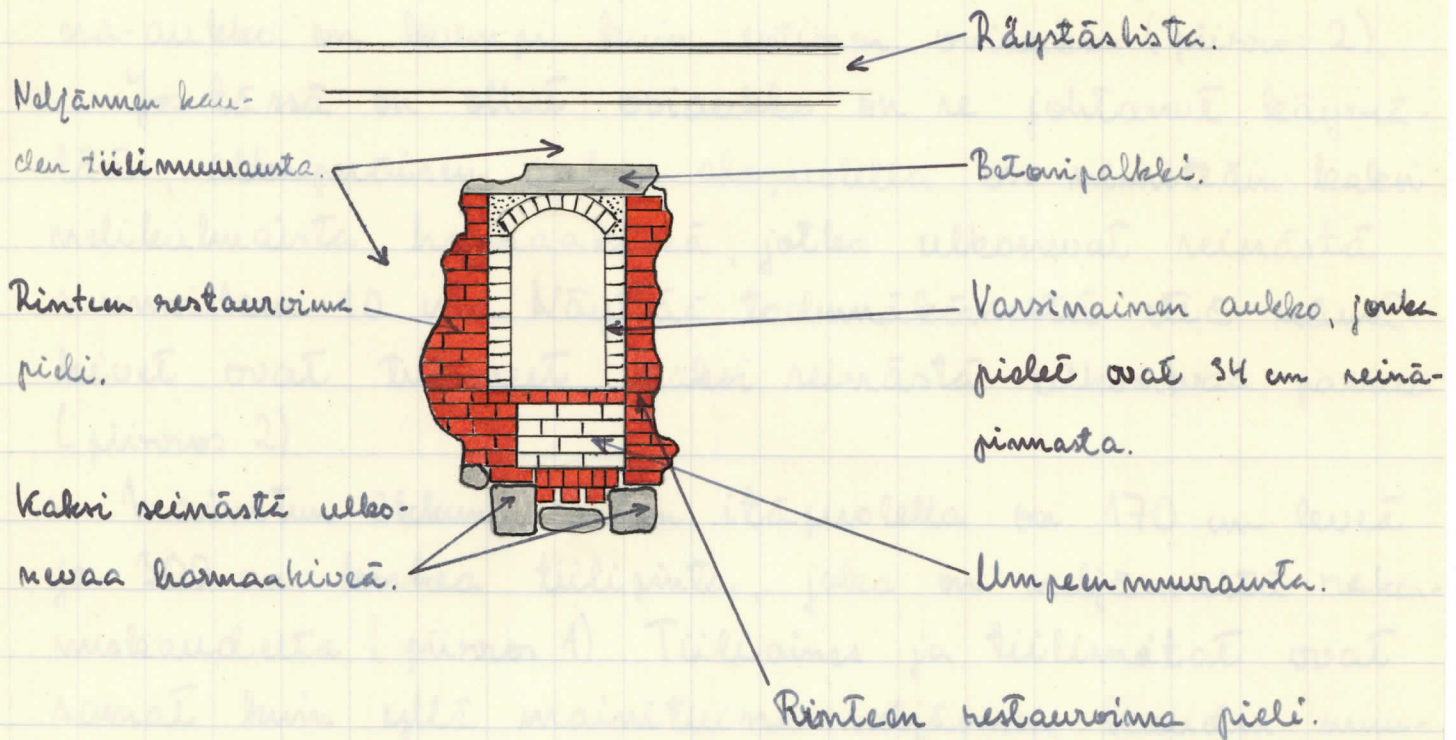 Räystäslista.
Neljännen kau-
den tiilimuurausta.
Betonipalkki.
Rinteen restauroima
pieli.
Varsinainen aukko, jonka
pielet ovat 34 cm seinä-
pinnasta.
Kaksi seinästä ulko-
nevaa harmaakiveä.
Umpeen muurausta.
Rinteen restauroima pieli.